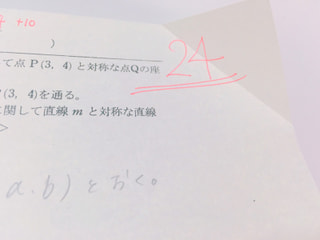 +10
)
24
て点 P (3, 4) と対称な点Qの座
(3, 4)を通る。
に関して直線 m と対称な直線
>
a.b)とおく。